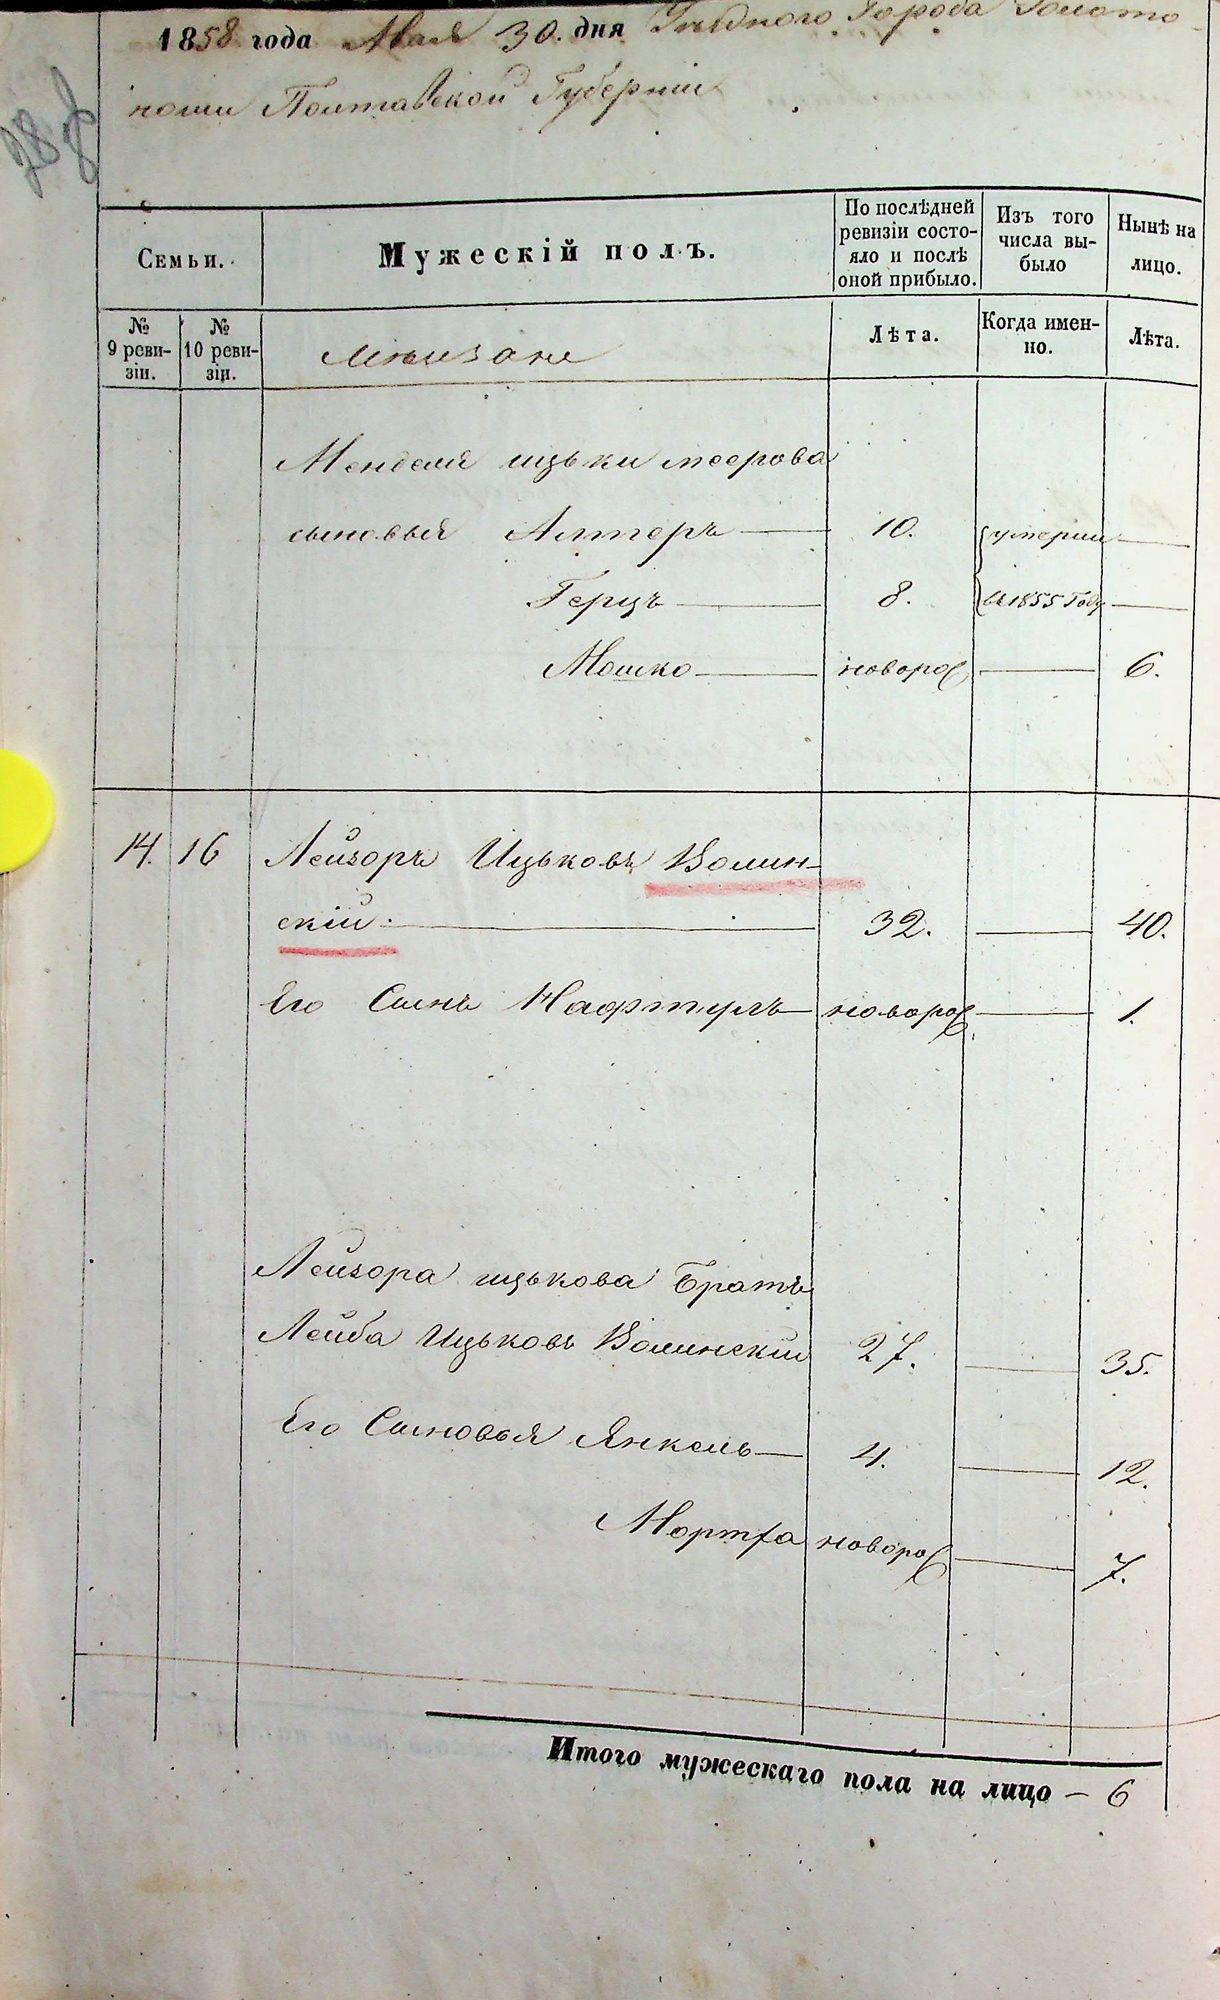 1858 года Мая 30. дня Уѣзднаго Города Золото-
ноши Полтавской Губерніи
Семьи.
Мужескій полъ.
По послѣдней ревизіи состо-
яло и послѣ оной прибыло.
Изъ того числа вы-
было
Нынѣ на лицо.
№ 9 реви-
зіи.
№ 10 реви-
зіи.
мѣщане
Лѣта.
Когда имен-
но.
Лѣта.
Менделя ицьки меерова
сыновья Алтеръ 10. умерли
Герцъ 8. въ 1855 Году
Мошко новоро 6.
14. 16 Лейзоръ Ицьковъ Волин-
скій. 32. 40.
Его Сынъ Нафтулъ новоро 1.
Лейзора ицькова Братъ
Лейба Ицьковъ Волинскій 27. 35.
Его Сыновья Янкель 4. 12.
новоро 7.
Итого мужескаго пола на лицо – 6